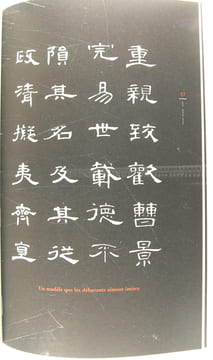 重親致歡曹景
完易世載德不
隕其名及其從
政清擬夷齊直
Un modèle que les débutants aiment imiter